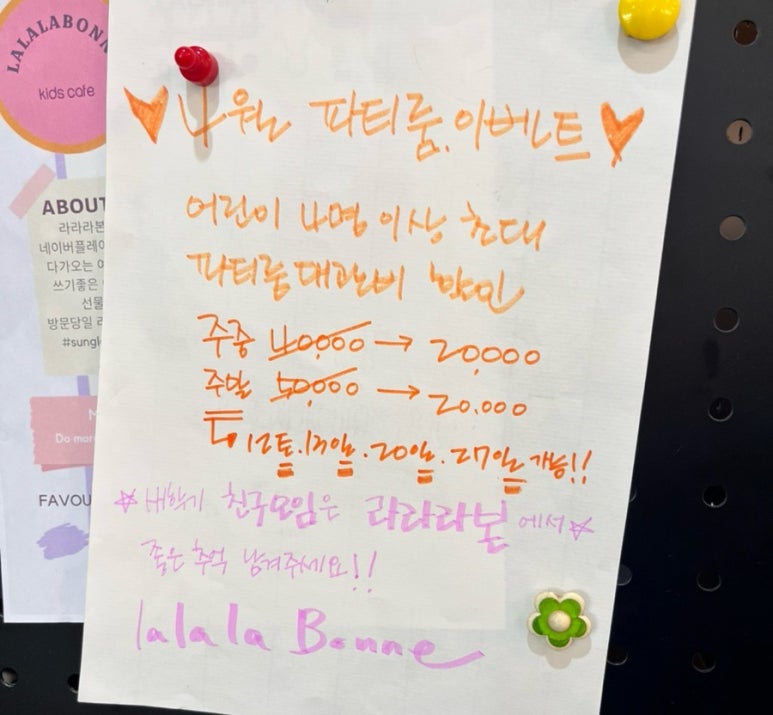 LALALABONN
kids cafe
4월 파티룸.이벤트
어린이 4명 이상 초대
파티룸대관비 할인
주중 40,000 → 20,000
주말 50,000 → 20.000
12토.13일.20일.27일 가능!!
새학기 친구모임은 라라라본 에서
좋은 추억 남겨주세요!!
lalala Bonne
ABOUT
라라라본
네이버플레이
다가오는
쓰기좋은
선물
방문당일
Do mor
FAVOU